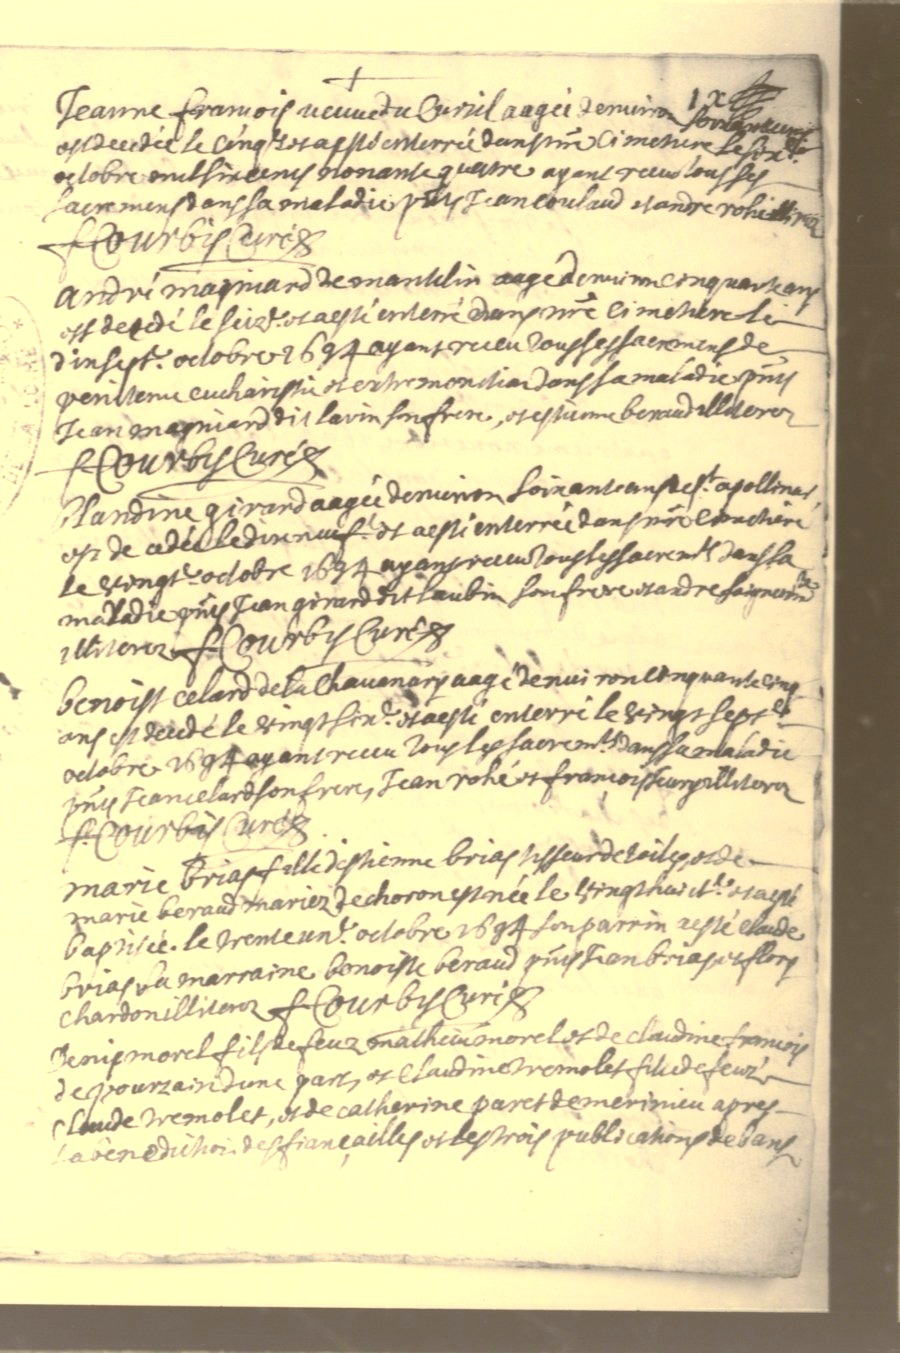 Jeanne francois veuve du Cursil aagée denviron soixante ans
est decedée le cinqe. et a esté enterrée dans nre Cimetiere le sixe.
octobre mil six cens nonante quatre ayant receu tous ses
sacremens dans sa maladie pnts Jean coulaud et andre rohé illiterez
f Courbis Curé
André magniard de mantelin aagé denviron cinquante ans
est decedé le seize. et a esté enterré dans nre Cimetiere le
dixsepte. octobre 1694 ayant receu tous les sacremens de
penitence eucharistie et extremonction dans sa maladie pnts
Jean magniard dit lavin son frere, et estienne beraud illiterez
f Courbis Curé
Claudine girard aagée denviron soixante ans de st. apollinar
est decedée le dixneufe. et a esté enterrée dans nre Cimetiere
le vingte. octobre 1694 ayant receu tous les sacremts dans sa
maladie pnts Jean girard dit laubin son frere et andre
illiterez f Courbis Curé
benoist celard de la Chavanary aagé denviron cinquante cinq
ans est decedé le vingt sixe. et a esté enterré le vingt septe
octobre 1694 ayant receu tous les sacremts dans sa maladie
pnts Jean celard son frere, Jean rohé et francois illiterez
f Courbis Curé
marie brias fille destienne brias tisseur de toiles et de
marie beraud mariez de choron est née le vingthuicte. et a esté
baptisée le trente une. octobre 1694 son parrin a esté claude
brias sa marraine benoiste beraud pnts Jean brias et flory
chardon illiterez f Courbis Curé
Denis morel fils de feuz mathieu morel et de claudine francois
de pourzain dune part, et Claudine tremolet fille de feuz
Claude tremolet, et de catherine paret de merinieu apres
la benediction des fiançailles et les trois publications de bans